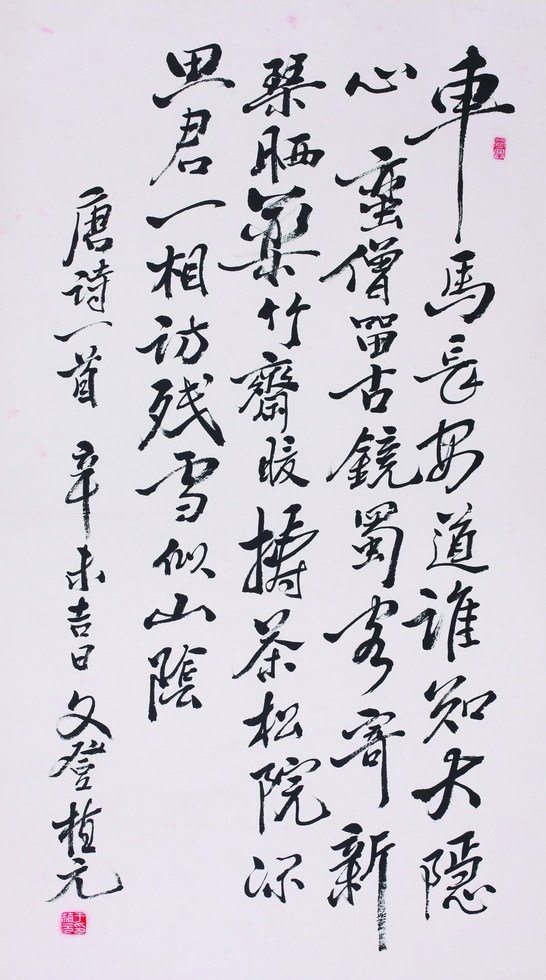 車馬長安道誰知大隱
心蛮僧留古鏡蜀客寄新
琴晒藥竹齋暖擣茶松院深
思君一相訪残雪似山陰
唐詩一首 辛未吉日 文登植元